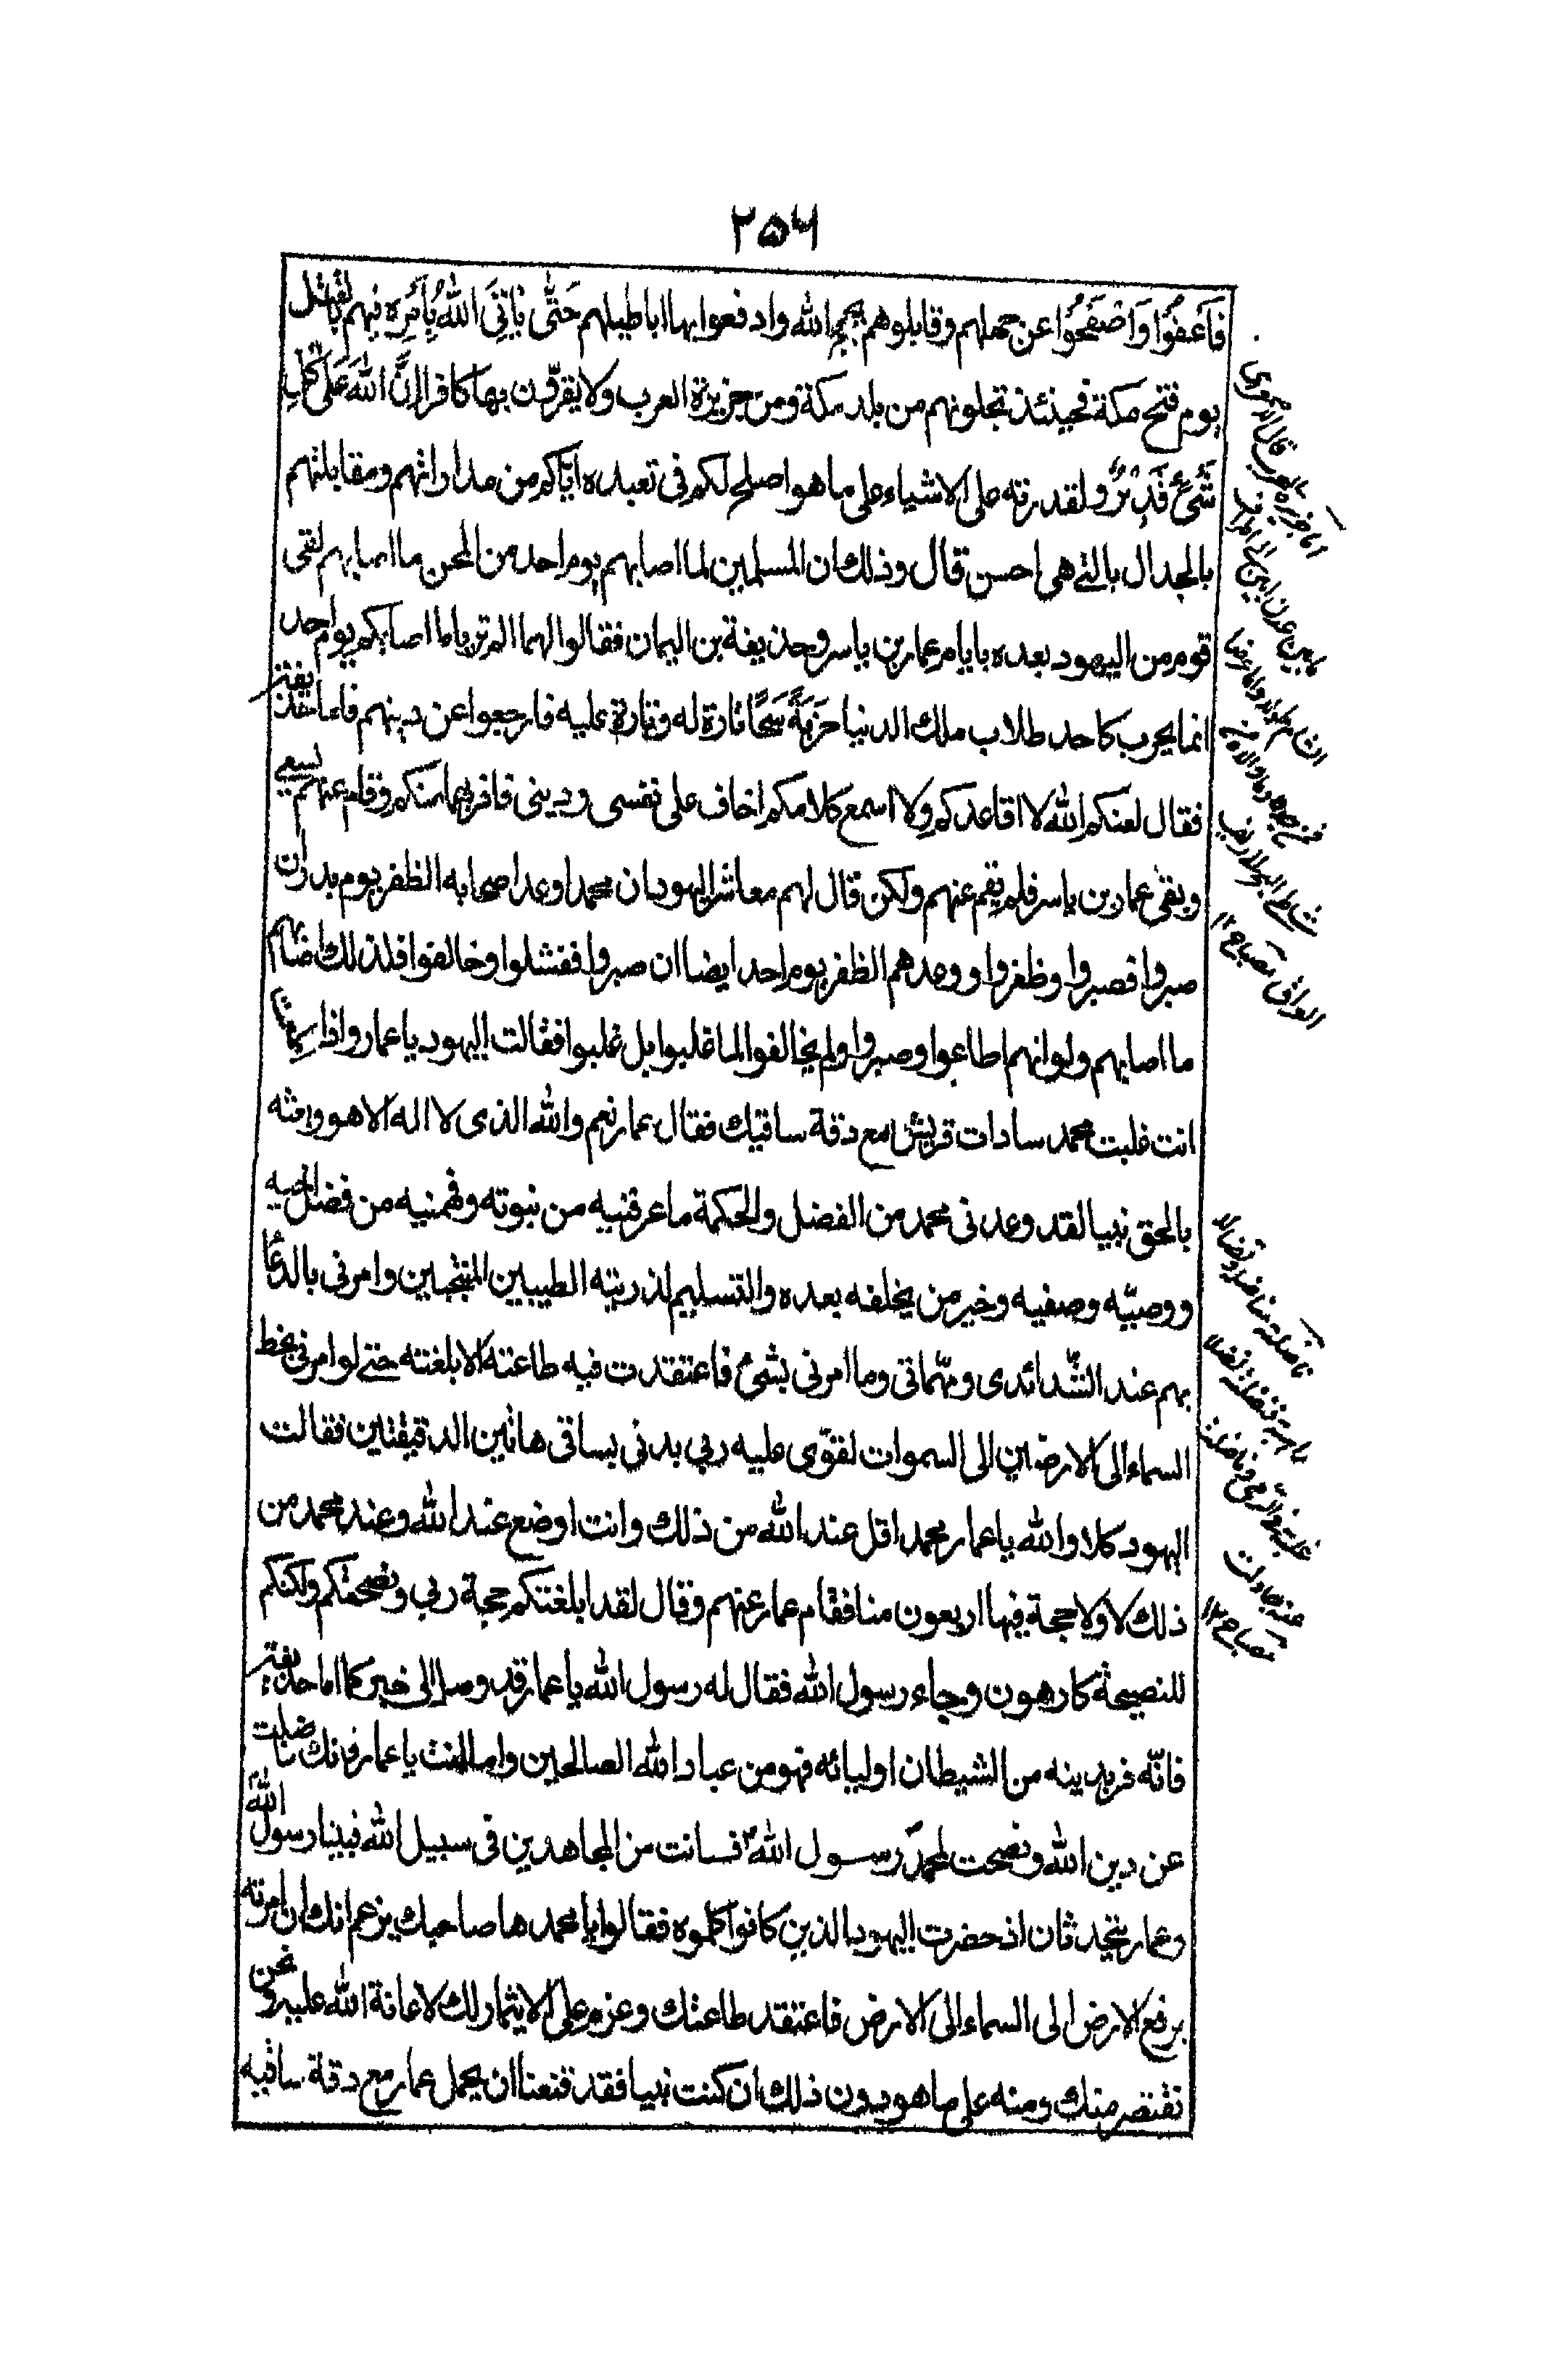 ٢٥٦
فَاعْفُوا وَاصْفَحُوا عن جهلهم وقابلوهم بحجج الله وادفعوا بها اباطيلهم حَتّٰى يَأْتِيَ اللهُ بِأَمْرِهِ فيهم بالقتل
يوم فتح مكة فحينئذ تجلونهم من بلد مكة ومن جزيرة العرب ولا يقرّون بها كافرا اِنَّ اللهَ عَلٰى كُلِّ
شَيْءٍ قَدِيرٌ ولقدرته على الاشياء على ما هو اصلح لكم فى تعبده اياكم من مداراتهم ومقابلتهم
بالجدال بالتے هى احسن قال وذلك ان المسلمين لما اصابهم يوم احد من المحن ما اصابهم لقى
قوم من اليهود بعده بايام عمار بن ياسر وحذيفة بن اليمان فقالوا لهما الم تريا ما اصابكم يوم احد
انما يحرب كاحد طلاب ملك الدنيا حَرْبَهُ سَجَّا تارة له وتارة عليه فارجعوا عن دينهم فاما حذيفة
فقال لعنكم الله لا اقاعدكم ولا اسمع كلامكم اخاف على نفسى ودينى فافر بهما منكم وقام عنهم يسعى
وبقى عمار بن ياسر فلم يقم عنهم ولكن قال لهم معاشر اليهود ان محمدا وعد اصحابه الظفر يوم بدر ان
صبروا فصبروا وظفروا ووعدهم الظفر يوم احد ايضا ان صبروا ففشلوا وخالفوا فلذلك اصابهم
ما اصابهم ولو انهم اطاعوا وصبروا ولم يخالفوا لما غلبوا بل غلبوا فقالت اليهود يا عمار واذا اطعت
انت غلبت محمد سادات قريش مع دقة ساقيك فقال عمار نعم والله الذى لا اله الا هو وبعثه
بالحق نبيا لقد وعدنى محمد من الفضل والحكمة ما عرفنيه من نبوته وفهمنيه من فضل اخيه
ووصيّه وصفيه وخير من يخلفه بعده والتسليم لذريته الطيبين المنتجبين وامرنى بالدعا
بهم عند الشّدائدى ومهّماتى وما امرنى بشئ فاعتقدت فيه طاعته الا بلغته حتے لو امرنى بحط
السماء الى الارضين الى السموات لقوّى عليه ربى بدنى بساقى هاتين الدقيقتين فقالت
اليهود كلا والله يا عمار محمد اقل عند الله من ذلك وانت اوضع عند الله وعند محمد من
ذلك لا ولا حجة فيها اربعون منا فقام عمار عنهم وقال لقد ابلغتكم حجة ربى ونصحتكم ولكنكم
للنصيحة كارهون وجاء رسول الله فقال له رسول الله يا عمار قد وصل الى خبركما اما حذيفة
فانّه فر بدينه من الشيطان اوليائه فهو من عباد الله الصالحين واما انت يا عمار فانك ناضلت
عن دين الله ونصحت لمحمد رسول الله فانت من المجاهدين فى سبيل الله فبينا رسول الله
وعمار يتحدثان اذ حضرت اليهود الذين كانوا كلموه فقالوا يا محمد ها صاحبك يزعم انك ان امرته
برفع الارض الى السماء الى الارض فاعتقد طاعتك وعزم على الايتمار لك لاعانة الله عليه ونحن
نقتصر منك ومنه على ما هو دون ذلك ان كنت نبيا فقد قنعنا ان يحمل عمار مع دقة ساقيه